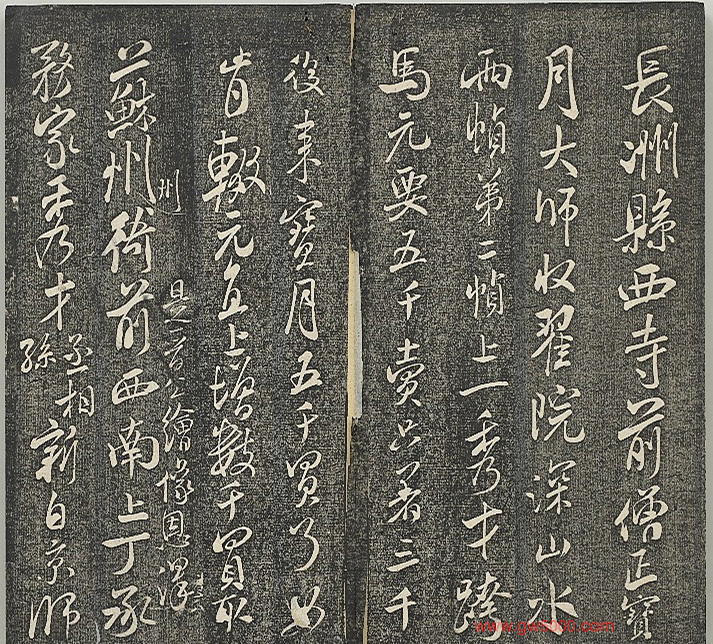 長洲縣西寺前僧正寶
月大師收翟院深山水
兩幀第二幀上一秀才跨
馬元要五千賣只著三千
後來寶月五千買了如
肯輟元直上增數千買取
州
是丁晉公繪像恩澤
一蘇州衙前西南上丁承
務家秀才丞相孫新自京師
www.gw8888.com